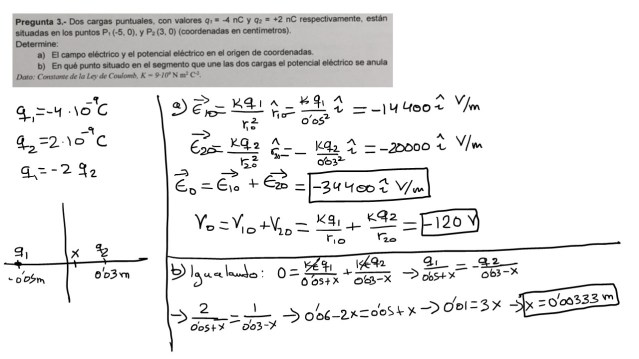 Pregunta 3.- Dos cargas puntuales, con valores q₁ = -4 nC y q₂ = +2 nC respectivamente, están
situadas en los puntos P₁(-5, 0), y P₂(3, 0) (coordenadas en centímetros).
Determine:
a) El campo eléctrico y el potencial eléctrico en el origen de coordenadas.
b) En qué punto situado en el segmento que une las dos cargas el potencial eléctrico se anula
Dato: Constante de la Ley de Coulomb, K = 9·10⁹ N m² C⁻².
q₁=-4·10⁻⁹C
q₂=2·10⁻⁹C
q₁=-2 q₂
q₁ x q₂
-0'05m 0'03m
a) E⃗₁₀=Kq₁/r₁₀² r̂₁₀=Kq₁/0'05² î =-14400 î V/m
E⃗₂₀=Kq₂/r₂₀² r̂₂₀=-Kq₂/0'03² î =-20000 î V/m
E⃗₀=E⃗₁₀+E⃗₂₀=-34400 î V/m
V₀=V₁₀+V₂₀=Kq₁/r₁₀+Kq₂/r₂₀=-120 V
b) Igualando: 0=Kq₁/0'05+x+Kq₂/0'03-x → q₁/0'05+x=-q₂/0'03-x
→ 2/0'05+x=1/0'03-x → 0'06-2x=0'05+x → 0'01=3x → x=0'00333 m